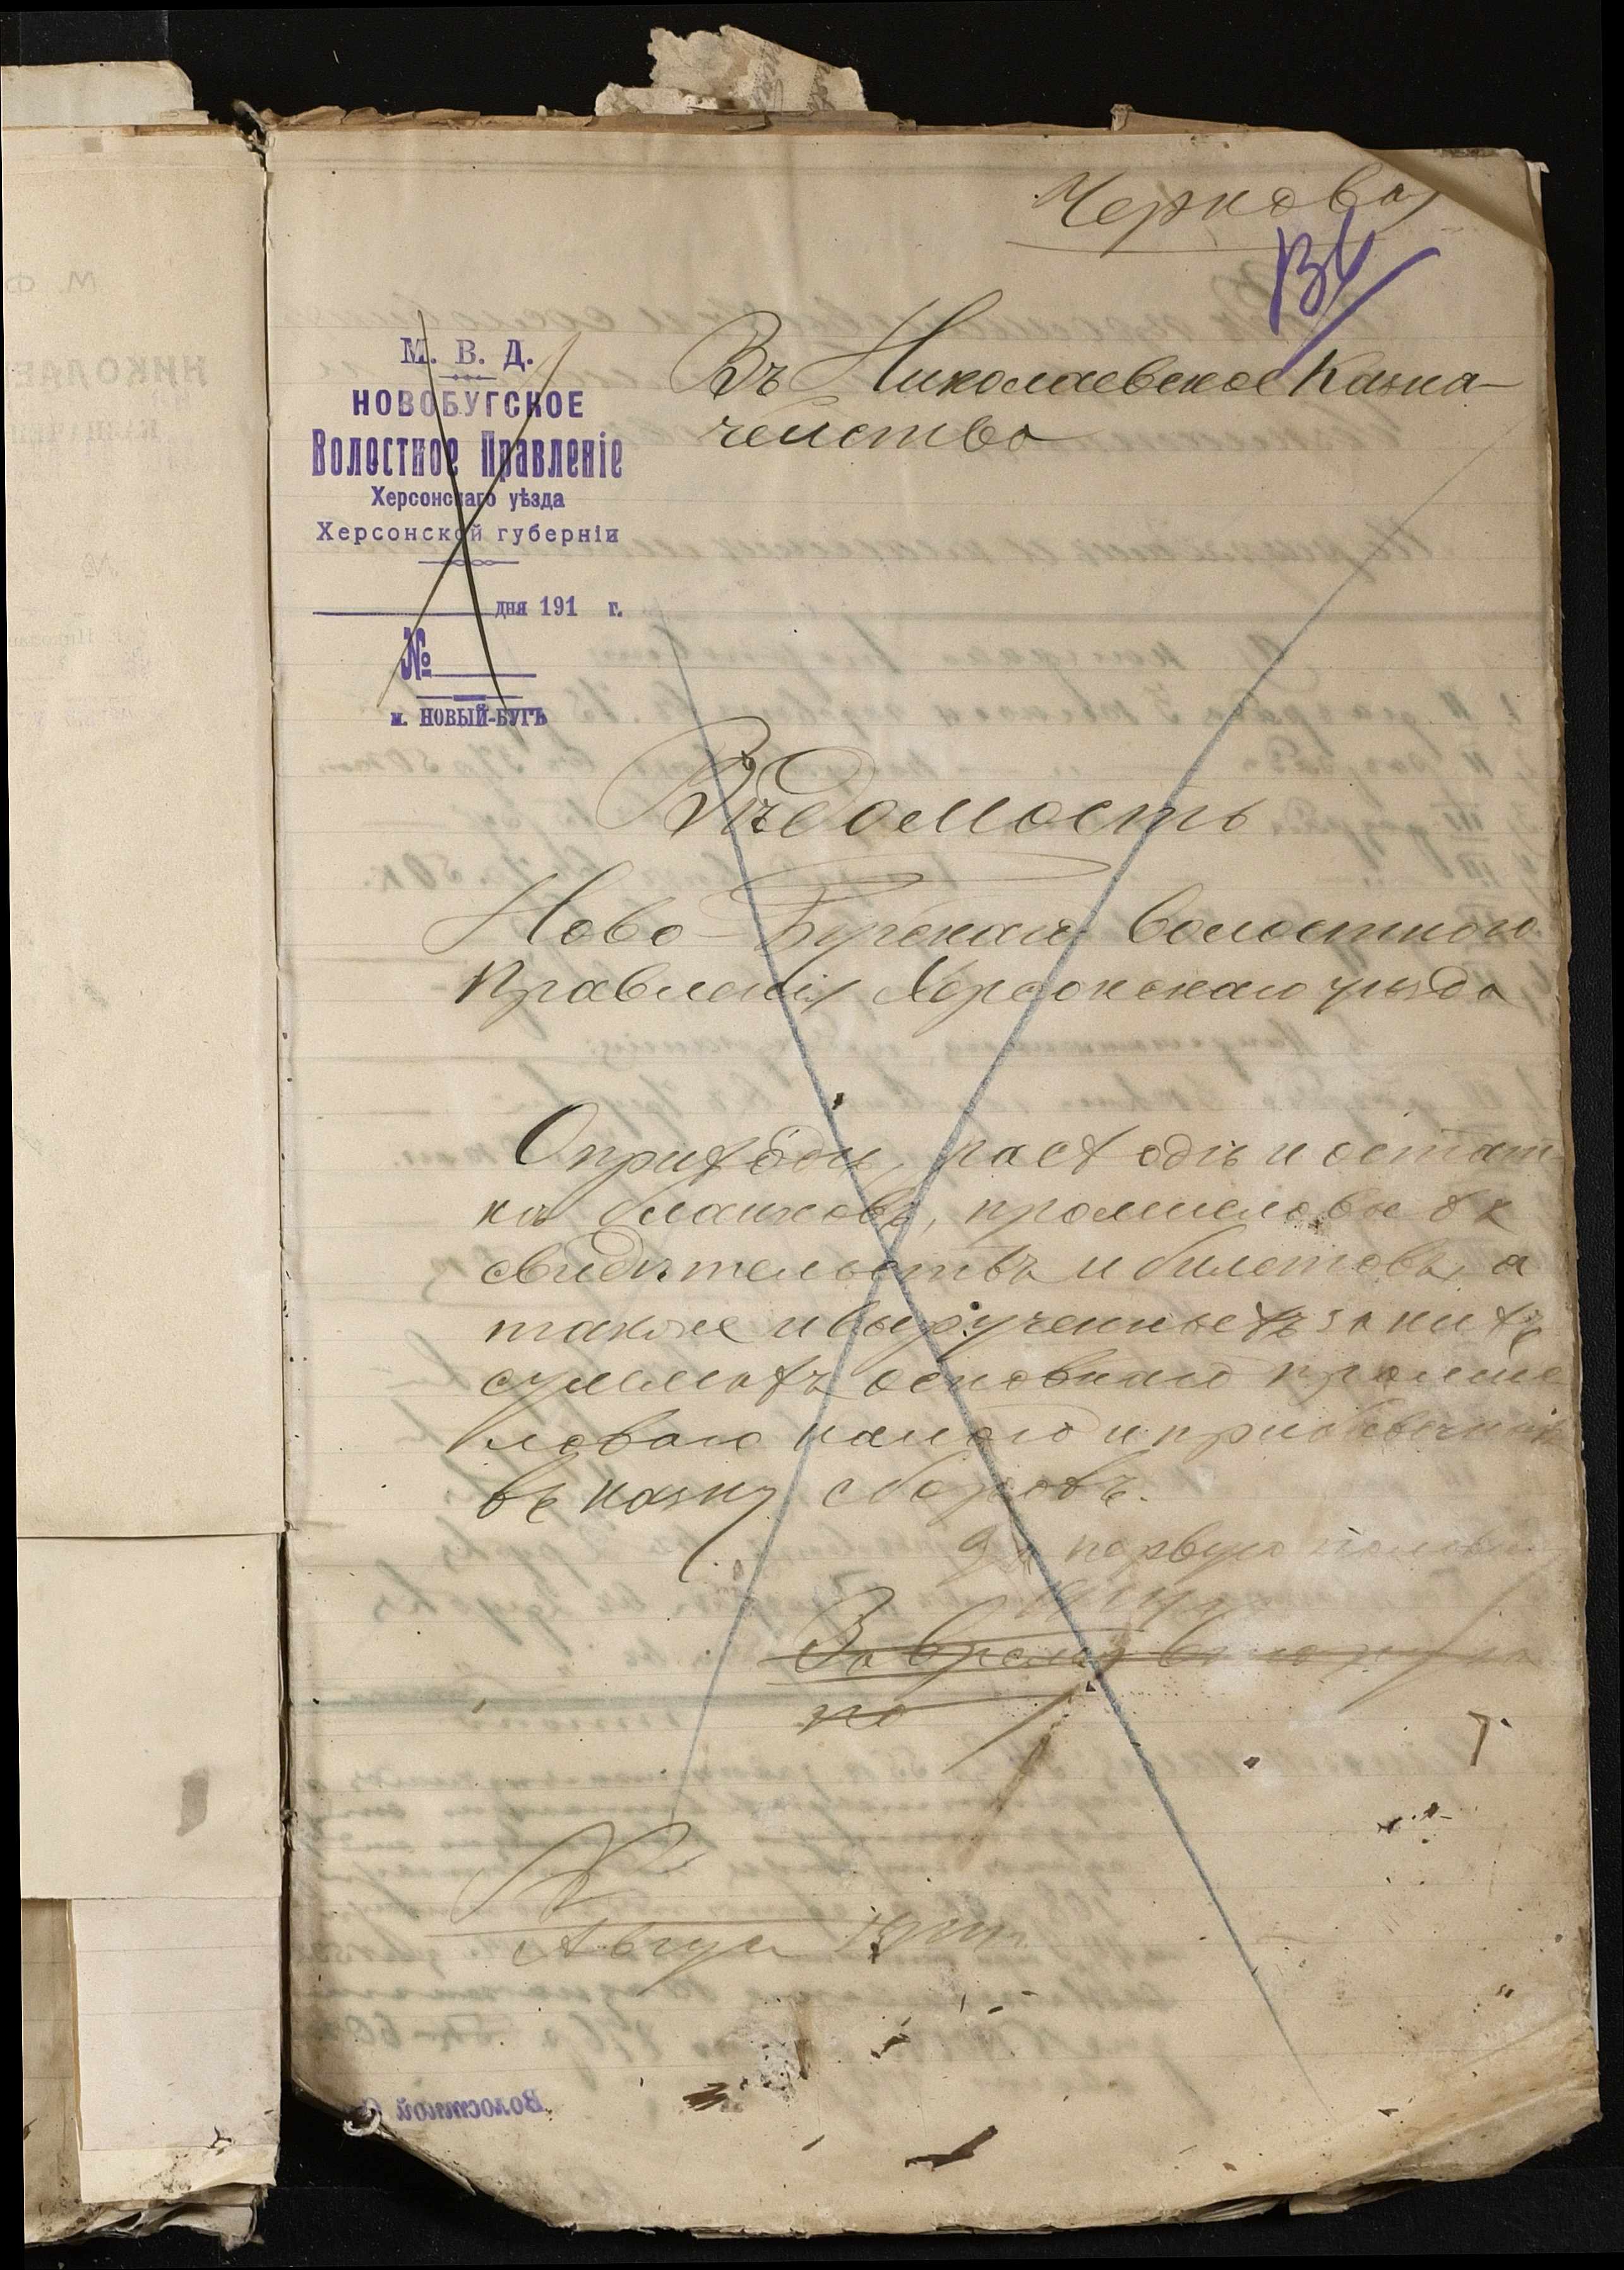 Чернова
М. В. Д.
НОВОБУГСКОЕ
Волостное Правленіе
Херсонскаго уѣзда
Херсонской губерніи
дня 191 г.
№
м. НОВЫЙ-БУГЪ
Въ Николаевское Казна-
чейство
Вѣдомость
Ново-Бугскаго Волостного
Правленія Херсонскаго уѣзда
О приходѣ, расходѣ и остат-
кѣ бланковъ, промысловыхъ
свидѣтельствъ и билетовъ, а
также и вырученныхъ за нихъ
суммахъ основнаго промыс
ловаго налога и
въ казну сборовъ.
За первую полови
ну
За время
по
Август
Волостной